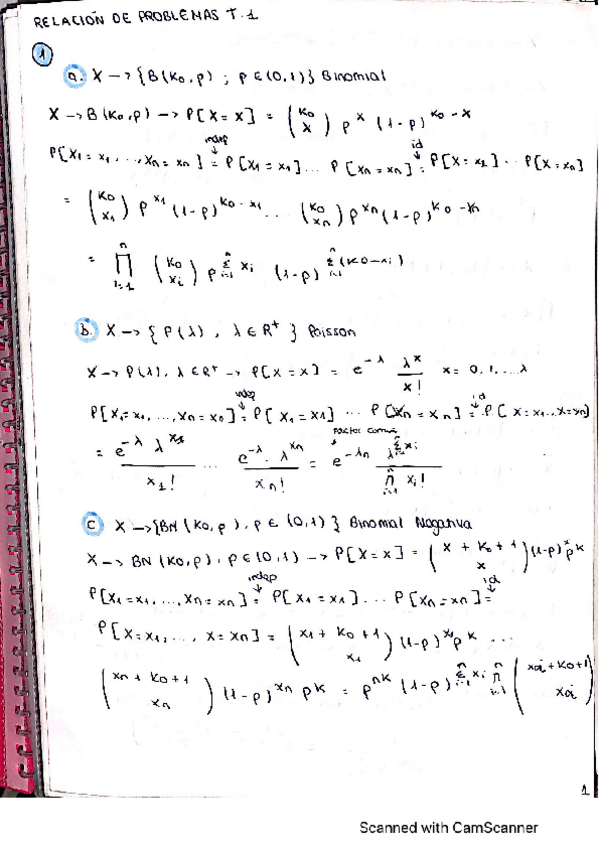 RELACIÓN DE PROBLEMAS T.1
①
a. X → {B(k₀,p) ; p ∈ (0,1)} Binomial
X → B(k₀,p) → P[X = x] = (k₀ x) p^x (1-p)^{k₀-x}
indep id
P[X₁ = x₁, ..., Xn = xn] = P[X₁ = x₁] ... P[Xn = xn] = P[X = x₁] .. P[X = xn]
= (k₀ x₁) p^{x₁} (1-p)^{k₀-x₁} ... (k₀ xn) p^{xn} (1-p)^{k₀-xn}
= ∏_{i=1}^{n} (k₀ xi) p^{∑_{i=1}^{n} xi} (1-p)^{∑_{i=1}^{n} (k₀-xi)}
b. X → {P(λ), λ ∈ R⁺} Poisson
X → P(λ), λ ∈ R⁺ → P[X = x] = e^{-λ} λ^x / x! x = 0, 1, ... λ
indep id
P[X₁ = x₁, ..., Xn = xn] = P[X₁ = x₁] ... P[Xn = xn] = P[X = x₁ .. X = xn]
factor común
= e^{-λ} λ^{x₁} / x₁! ... e^{-λ} · λ^{xn} / xn! = e^{-λn} λ^{∑_{i=1}^{n} xi} / ∏_{i=1}^{n} xi!
c X → {BN(k₀,p), p ∈ (0,1)} Binomial Negativa
X → BN(k₀,p), p ∈ (0,1) → P[X = x] = (x + k₀ + 1 x) (1-p)^x p^k
indep id
P[X₁ = x₁, ..., Xn = xn] = P[X₁ = x₁] ... P[Xn = xn] =
P[X = x₁, ..., X = xn] = (x₁ + k₀ + 1 x₁) (1-p)^{x₁} p^k ...
(xn + k₀ + 1 xn) (1-p)^{xn} p^k = p^{nk} (1-p)^{∑_{i=1}^{n} xi} ∏_{i=1}^{n} (xi + k₀ + 1 xi)
1
Scanned with CamScanner